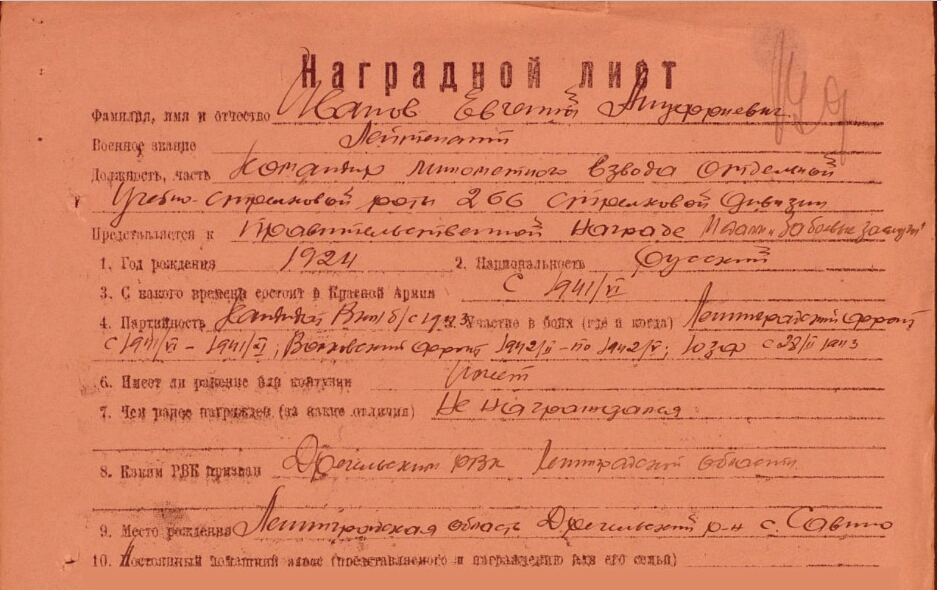 Наградной лист
Фамилия, имя и отчество Иванов Евгений
Военное звание Лейтенант
Должность, часть Командир минометного взвода Отдельной
Учебно-стрелковой роты 266 стрелковой дивизии
Представляется к Правительственной награде Медали „За боевые заслуги"
1. Год рождения 1924 2. Национальность Русский
3. С какого времени состоит в Красной Армии С 1941/VI
4. Партийность Кандидат ВКП/б/ с 1943 5. Участие в боях (где и когда) Ленинградский фронт
с 1941/VI - 1941/; Волховский фронт 1942/II - по 1942/V; Юзфр с 1943
6. Имеет ли ранение или контузии Имеет
7. Чем ранее награжден (за какие отличия) Не награждался
8. Каким РВК призван Дрегельским РВК Ленинградской области
9. Место рождения Ленинградская область Дрегельский р-н с. Савино
10. Постоянный домашний адрес (представляемого к награждению или его семьи)